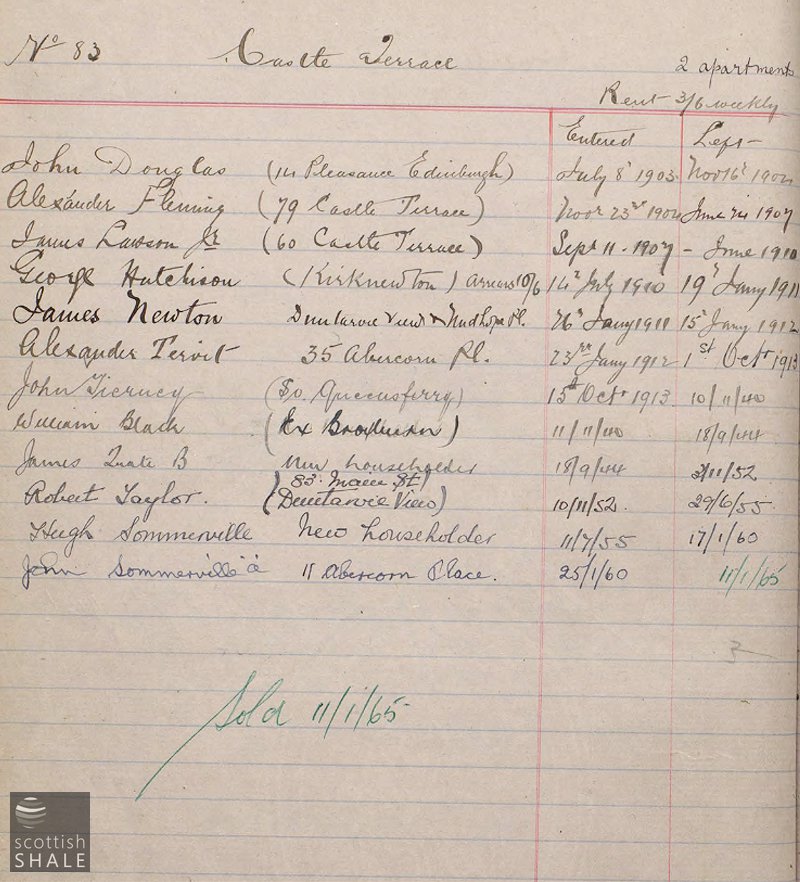 No 83 Castle Terrace 2 apartments
Rent 3/6 weekly
Entered Left
John Douglas (14 Pleasance Edinburgh) July 8 1903 Novr 16 1904
Alexander Fleming (79 Castle Terrace) Novr 23rd 1904 June 24 1907
James Lawson Jr (60 Castle Terrace) Sept 11 - 1907 - June 1910
George Hutchison (Kirknewton) arrears 10/6 14 July 1910 19 Jany 1911
James Newton Duntarvie View & Pl. 26 Jany 1911 15 Jany 1912
Alexander Tervit 35 Abercorn Pl. 23rd Jany 1912 1st Octr 1913
John Tierney (So Queensferry) 15th Octr 1913 10/11/40
William Black (Ex) 11/11/40 18/9/44
James B New householder 18/9/44 /11/52
83. Main St
Robert Taylor. (Duntarvie View) 10/11/52. 29/6/55.
Hugh Sommerville New householder 11/7/55 17/1/60
John Sommerville "a" 11 Abercorn Place. 25/1/60 11/1/65
3
Sold 11/1/65
scottish
SHALE